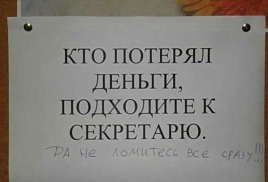 КТО ПОТЕРЯЛ
ДЕНЬГИ,
ПОДХОДИТЕ К
СЕКРЕТАРЮ.
ДА НЕ ЛОМИТЕСЬ ВСЕ СРАЗУ!!!